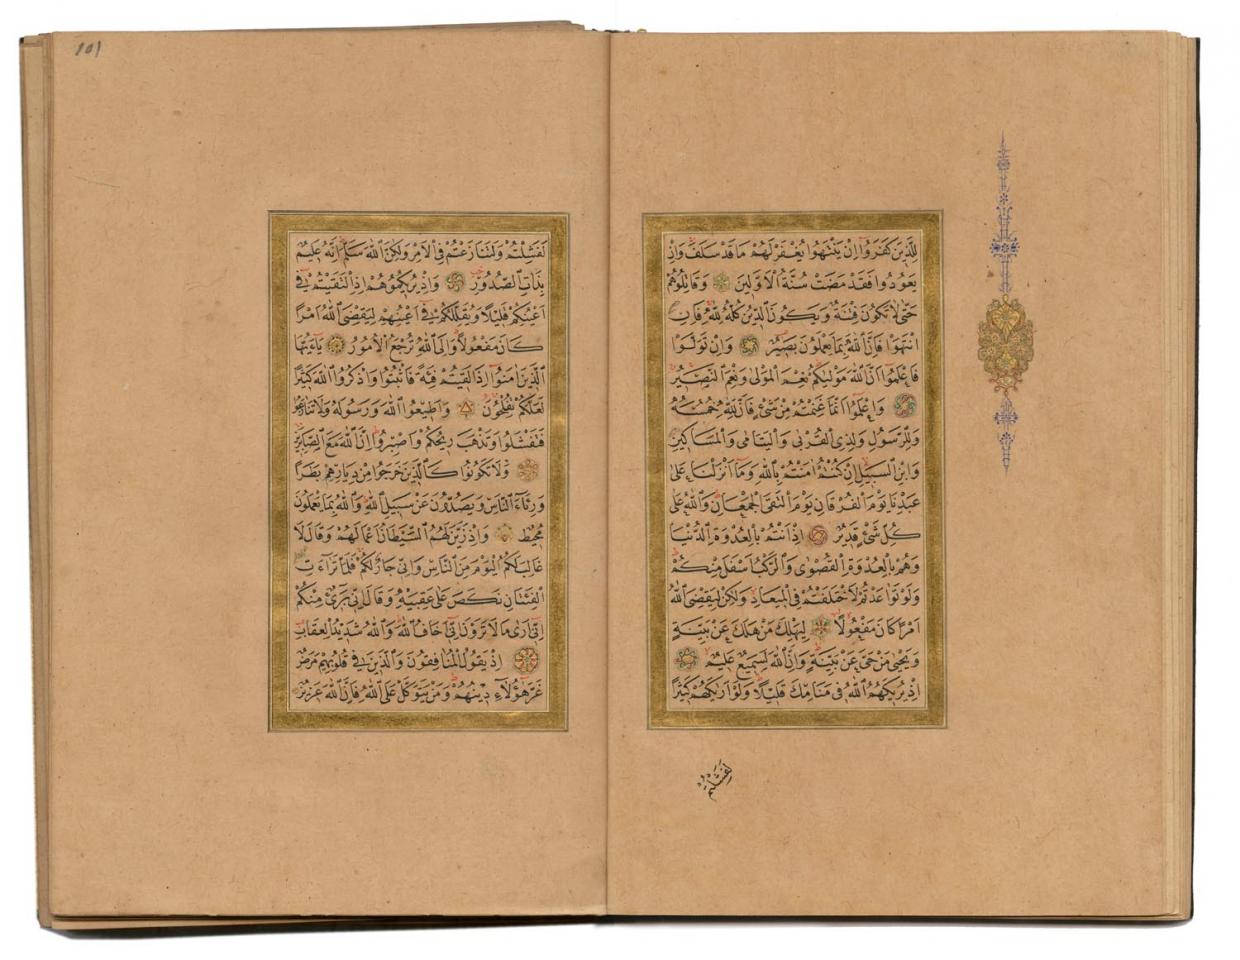 لِلَّذِينَ كَفَرُوا إِنْ يَنْتَهُوا يُغْفَرْ لَهُمْ مَا قَدْ سَلَفَ وَإِنْ
يَعُودُوا فَقَدْ مَضَتْ سُنَّةُ الْأَوَّلِينَ وَقَاتِلُوهُمْ
حَتَّى لَا تَكُونَ فِتْنَةٌ وَيَكُونَ الدِّينُ كُلُّهُ لِلَّهِ فَإِنِ
انْتَهَوْا فَإِنَّ اللَّهَ بِمَا يَعْمَلُونَ بَصِيرٌ وَإِنْ تَوَلَّوْا
فَاعْلَمُوا أَنَّ اللَّهَ مَوْلَيكُمْ نِعْمَ الْمَوْلَى وَنِعْمَ النَّصِيرُ
وَاعْلَمُوا أَنَّمَا غَنِمْتُمْ مِنْ شَيْءٍ فَأَنَّ لِلَّهِ خُمُسَهُ
وَلِلرَّسُولِ وَلِذِي الْقُرْبَى وَالْيَتَامَى وَالْمَسَاكِينِ
وَابْنِ السَّبِيلِ إِنْ كُنْتُمْ آمَنْتُمْ بِاللَّهِ وَمَا أَنْزَلْنَا عَلَى
عَبْدِنَا يَوْمَ الْفُرْقَانِ يَوْمَ الْتَقَى الْجَمْعَانِ وَاللَّهُ عَلَى
كُلِّ شَيْءٍ قَدِيرٌ إِذْ أَنْتُمْ بِالْعُدْوَةِ الدُّنْيَا
وَهُمْ بِالْعُدْوَةِ الْقُصْوَى وَالرَّكْبُ أَسْفَلَ مِنْكُمْ
وَلَوْ تَوَاعَدْتُمْ لَاخْتَلَفْتُمْ فِي الْمِيعَادِ وَلَكِنْ لِيَقْضِيَ اللَّهُ
أَمْرًا كَانَ مَفْعُولًا لِيَهْلِكَ مَنْ هَلَكَ عَنْ بَيِّنَةٍ
وَيَحْيَى مَنْ حَيَّ عَنْ بَيِّنَةٍ وَإِنَّ اللَّهَ لَسَمِيعٌ عَلِيمٌ
إِذْ يُرِيكَهُمُ اللَّهُ فِي مَنَامِكَ قَلِيلًا وَلَوْ أَرَيكَهُمْ كَثِيرًا
لَفَشِلْتُمْ
101
لَفَشِلْتُمْ وَلَتَنَازَعْتُمْ فِي الْأَمْرِ وَلَكِنَّ اللَّهَ سَلَّمَ إِنَّهُ عَلِيمٌ
بِذَاتِ الصُّدُورِ وَإِذْ يُرِيكُمُوهُمْ إِذِ الْتَقَيْتُمْ فِي
أَعْيُنِكُمْ قَلِيلًا وَيُقَلِّلُكُمْ فِي أَعْيُنِهِمْ لِيَقْضِيَ اللَّهُ أَمْرًا
كَانَ مَفْعُولًا وَإِلَى اللَّهِ تُرْجَعُ الْأُمُورُ يَاءَيُّهَا
الَّذِينَ آمَنُوا إِذَا لَقِيتُمْ فِئَةً فَاثْبُتُوا وَاذْكُرُوا اللَّهَ كَثِيرًا
لَعَلَّكُمْ تُفْلِحُونَ وَأَطِيعُوا اللَّهَ وَرَسُولَهُ وَلَا تَنَازَعُوا
فَتَفْشَلُوا وَتَذْهَبَ رِيحُكُمْ وَاصْبِرُوا إِنَّ اللَّهَ مَعَ الصَّابِرِينَ
وَلَا تَكُونُوا كَالَّذِينَ خَرَجُوا مِنْ دِيَارِهِمْ بَطَرًا
وَرِئَاءَ النَّاسِ وَيَصُدُّونَ عَنْ سَبِيلِ اللَّهِ وَاللَّهُ بِمَا يَعْمَلُونَ
مُحِيطٌ وَإِذْ زَيَّنَ لَهُمُ الشَّيْطَانُ أَعْمَالَهُمْ وَقَالَ لَا
غَالِبَ لَكُمُ الْيَوْمَ مِنَ النَّاسِ وَإِنِّي جَارٌ لَكُمْ فَلَمَّا تَرَاءَتِ
الْفِئَتَانِ نَكَصَ عَلَى عَقِبَيْهِ وَقَالَ إِنِّي بَرِيءٌ مِنْكُمْ
إِنِّي أَرَى مَا لَا تَرَوْنَ إِنِّي أَخَافُ اللَّهَ وَاللَّهُ شَدِيدُ الْعِقَابِ
إِذْ يَقُولُ الْمُنَافِقُونَ وَالَّذِينَ فِي قُلُوبِهِمْ مَرَضٌ
غَرَّ هَؤُلَاءِ دِينُهُمْ وَمَنْ يَتَوَكَّلْ عَلَى اللَّهِ فَإِنَّ اللَّهَ عَزِيزٌ